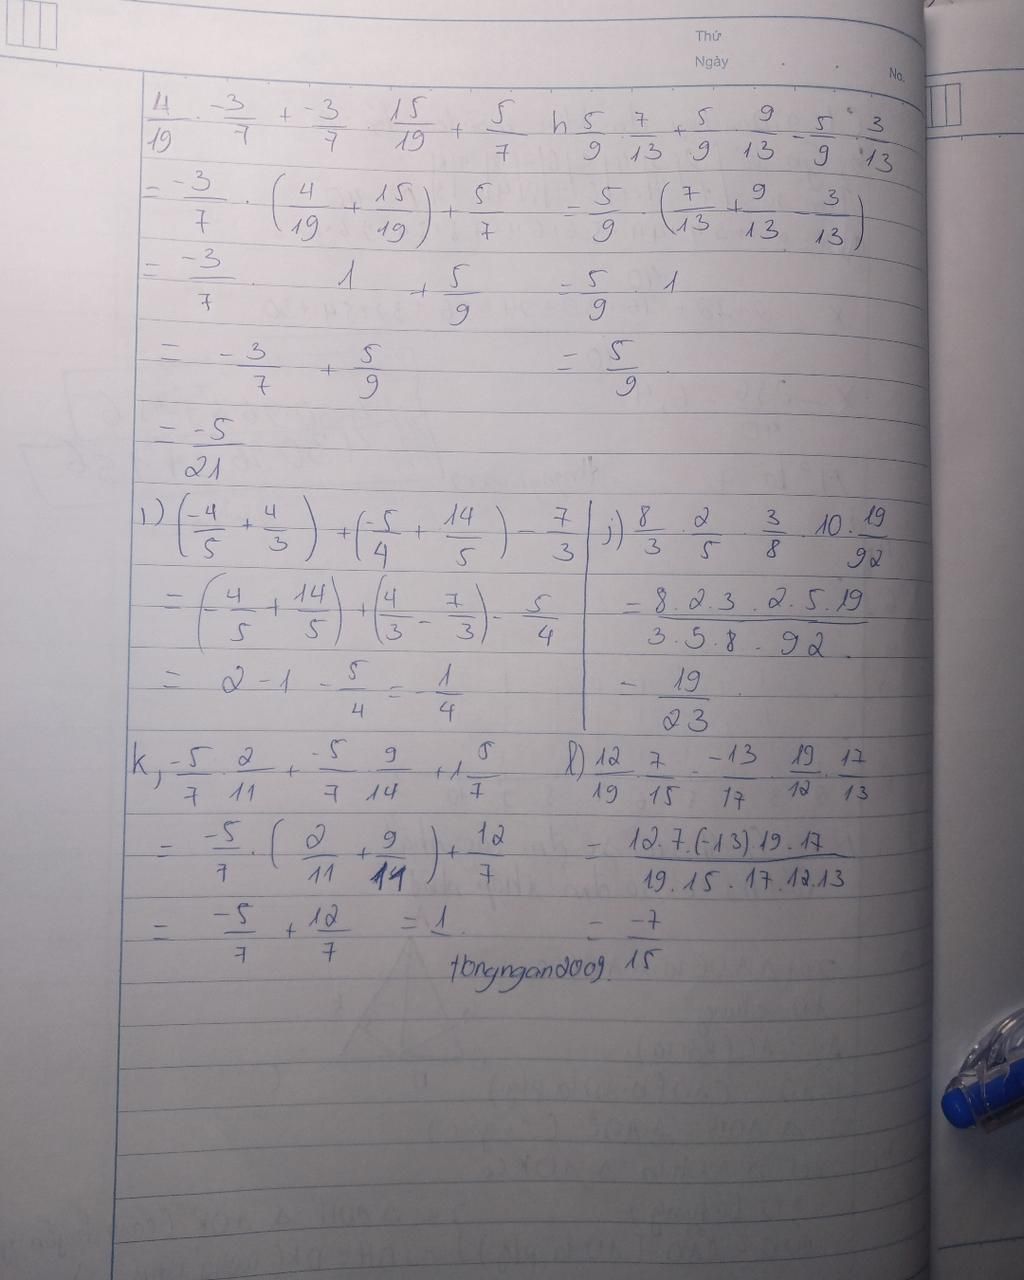 Thứ
Ngày
No.
4/19 · -3/7 + -3/7 · 15/19 + 5/7
= -3/7 · (4/19 + 15/19) + 5/7
= -3/7 · 1 + 5/9
= -3/7 + 5/9
= -5/21
h 5/9 · 7/13 + 5/9 · 9/13 - 5/9 · 3/13
= 5/9 · (7/13 + 9/13 - 3/13)
= 5/9 · 1
= 5/9
i) (-4/5 + 4/3) + (-5/4 + 14/5) - 7/3
= (-4/5 + 14/5) + (4/3 - 7/3) - 5/4
= 2 - 1 - 5/4 = -1/4
j) 8/3 · 2/5 · 3/8 · 10 · 19/92
= 8 . 2 . 3 . 2 . 5 . 19 / 3 . 5 . 8 . 92
= 19/23
k, -5/7 · 2/11 + -5/7 · 9/14 + 1 5/7
= -5/7 · (2/11 + 9/11) + 12/7
= -5/7 + 12/7 = 1
l) 12/19 · 7/15 · -13/17 · 19/12 · 17/13
= 12 . 7 . (-13) . 19 . 17 / 19 . 15 . 17 . 12 . 13
= -7/15
tongngan2009.